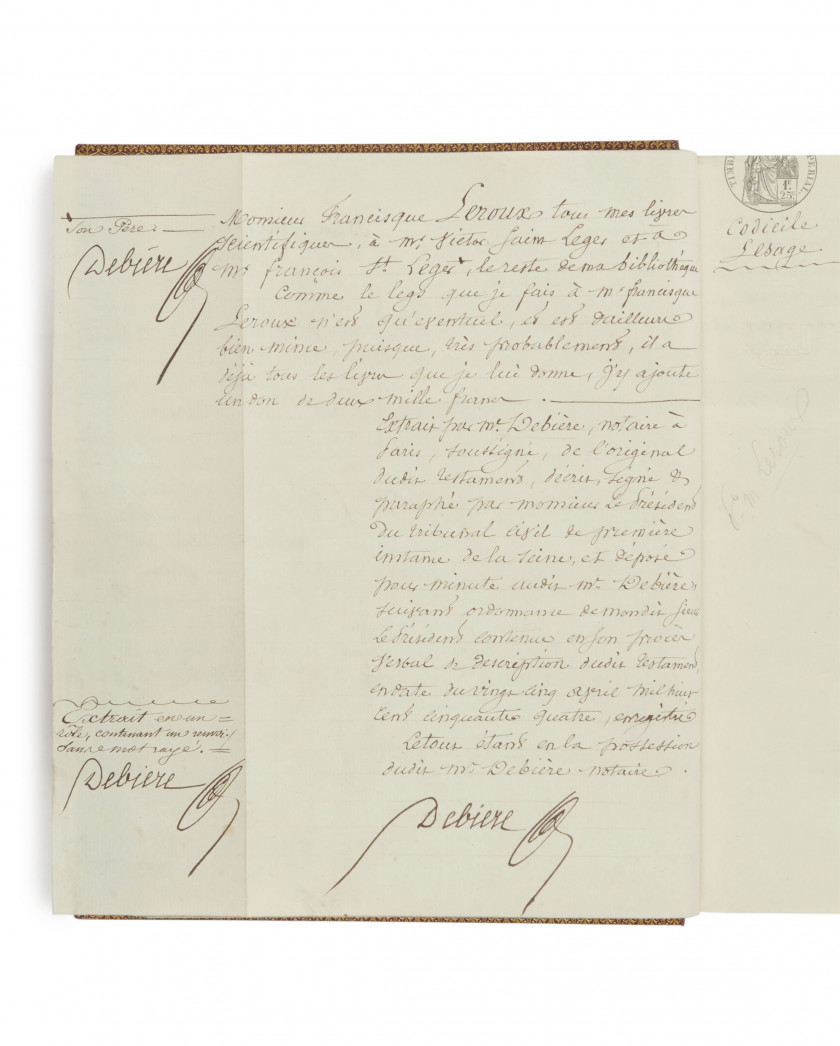 Son Père
Debière
Monsieur Francisque Leroux tous mes livres
scientifiques, à mr. Victor Saint Leger et à
mr. françois St. Leger, le reste de ma bibliothèque
Comme le legs que je fais à mr. francisque
Leroux n'est qu'eventuel, et est d'ailleurs
bien mince, puisque, très probablement, il a
déjà tous les livres que je lui donne, j'y ajoute
un don de deux mille francs.
Extrait par mr. Debière, notaire à
Paris, soussigné, de l'original
dudit testament, décrit, signé &
paraphé par monsieur Le Président
du tribunal civil de première
instance de la Seine, et déposé
pour minute audit mr. Debière,
suivant ordonnance de mondit sieur
Le Président contenue en son procès
verbal de description dudit testament,
en date du vingt cinq avril mil huit
cent cinquante quatre, enregistré
Le tout étant en la possession
dudit mr. Debière notaire.
Debière
Extrait en un
rôle, contenant un renvoi,
sans mot rayé.
Debière
TIMBRE IMPERIAL
1F.
25c.
Codicile
Lesage
Leroux